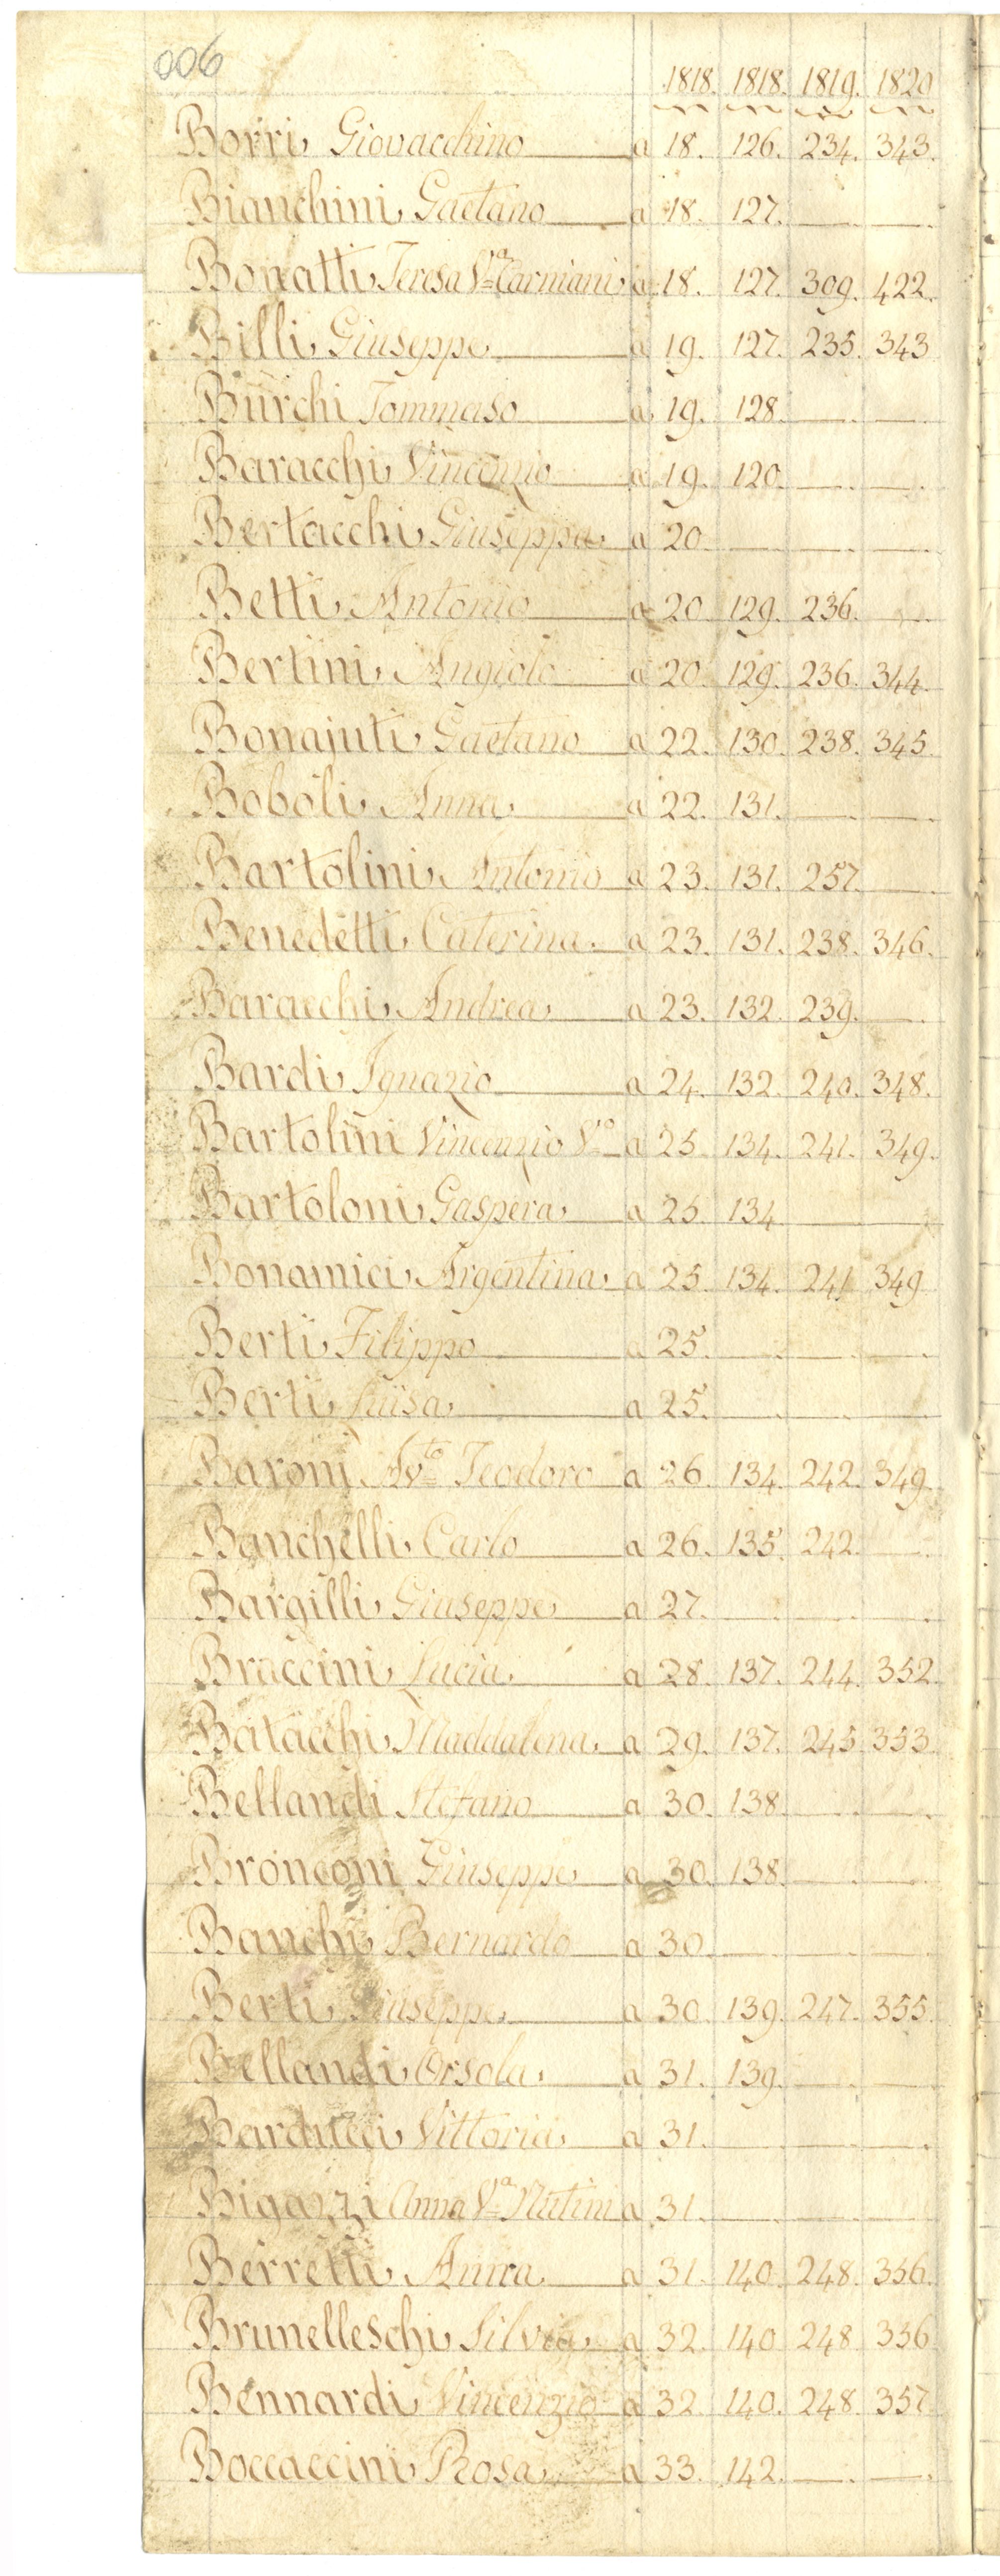 006
1818. 1818. 1819. 1820
Borri Giovacchino a 18. 126. 234. 343.
Bianchini Gaetano a 18. 127.
Bonatti Teresa Vᵃ Carmiani a 18. 127. 309. 422.
Billi Giuseppe a 19. 127. 235. 343
Burchi Tommaso a 19. 128.
Baracchi Vincenzio a 19. 120.
Bertacchi Giuseppa a 20.
Betti Antonio a 20 129. 236.
Bertini Angiolo a 20. 129. 236. 344.
Bonajuti Gaetano a 22. 130. 238. 345.
Boboli Anna a 22. 131.
Bartolini Antonio a 23. 131. 257.
Benedetti Caterina a 23. 131. 238. 346.
Baracchi Andrea a 23. 132. 239.
Bardi Ignazio a 24. 132. 240. 348.
Bartolini Vincenzio Vᵒ a 25. 134. 241. 349.
Bartoloni Gaspera a 25. 134
Bonamici Argentina a 25. 134. 241 349
Berti Filippo a 25.
Berti Luisa a 25.
Baroni Avᵗᵒ Teodoro a 26. 134. 242. 349.
Banchelli Carlo a 26. 135. 242.
Bargilli Giuseppe a 27.
Braccini Lucia a 28. 137. 244. 352.
Batacchi Maddalena a 29. 137. 245. 353.
Bellandi Stefano a 30. 138.
Bronconi Giuseppe a 30. 138.
Banchi Bernardo a 30.
Berti Giuseppe a 30. 139. 247. 355.
Bellandi Orsola a 31. 139.
Barducci Vittoria a 31.
Bigazzi Anna Vᵃ Nutini a 31.
Berretti Anna a 31. 140. 248. 356.
Brunelleschi Silvia a 32. 140 248 356
Bennardi Vincenzio a 32. 140. 248. 357
Boccaccini Rosa a 33. 142.